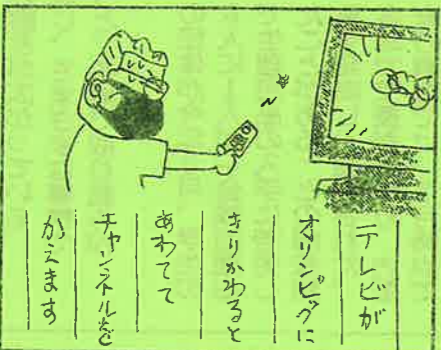 テレビが
オリンピックに
きりかわると
あわてて
チャンネルを
かえます